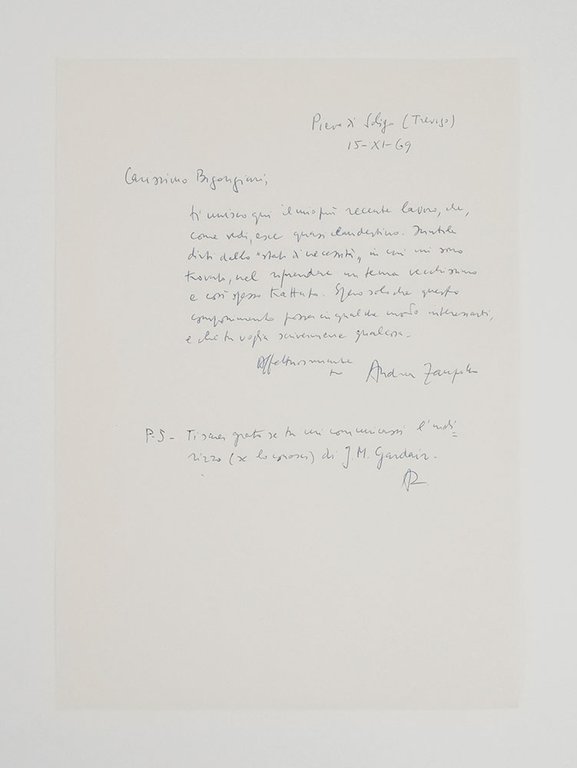 Pieve di Soligo (Treviso)
15-XI-69
Carissimo Bigongiari,
ti unisco qui il mio più recente lavoro, che,
come vedi, esce quasi clandestino. Inutile
dirti dello "stato di necessità" in cui mi sono
trovato, nel riprendere un tema vecchissimo
e così spesso trattato. Spero solo che questo
componimento possa in qualche modo interessarti,
e che tu voglia scrivermene qualcosa.
Affettuosamente
tuo Andrea Zanzotto
P.S- Ti sarei grato se tu mi comunicassi l'indi=
rizzo (se lo conosci) di J M. Gardair.
AZ